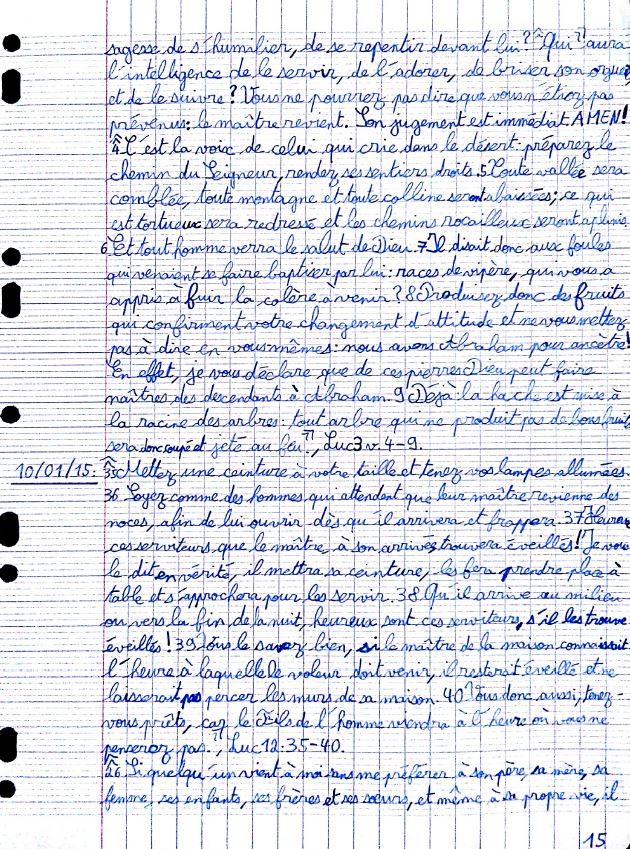 sagesse de s'humilier, de se repentir devant lui? "Qui" aura
l'intelligence de le servir, de l'adorer, de briser son orgueil
et de le suivre? Vous ne pourrez pas dire que vous n'étiez pas
prévenus: le maître revient. Son jugement est immédiat AMEN!
"4 C'est la voix de celui qui crie dans le désert: préparez le
chemin du Seigneur, rendez ses sentiers droits. 5 Toute vallée sera
comblée, toute montagne et toute colline seront abaissées; ce qui
est tortueux sera redressé et les chemins rocailleux seront aplanis.
6 Et tout homme verra le salut de Dieu. 7 Il disait donc aux foules
qui venaient se faire baptiser par lui: races de vipère, qui vous a
appris à fuir la colère à venir? 8 Produisez donc des fruits
qui confirment votre changement d'attitude et ne vous mettez
pas à dire en vous-mêmes: nous avons Abraham pour ancêtre!
En effet, je vous déclare que de ces pierres Dieu peut faire
naîtres des descendants à Abraham. 9 Déjà la hache est mise à
la racine des arbres: tout arbre qui ne produit pas de bons fruits
sera donc coupé et jeté au feu.", Luc 3 v. 4-9.
10/01/15: "35 Mettez une ceinture à votre taille et tenez vos lampes allumées.
36 Soyez comme des hommes qui attendent que leur maître revienne des
noces, afin de lui ouvrir dès qu'il arrivera et frappera. 37 Heureux
ces serviteurs que le maître, à son arrivée, trouvera éveillés! Je vous
le dit en vérité, il mettra sa ceinture, les fera prendre place à
table et s'approchera pour les servir. 38 Qu'il arrive au milieu
ou vers la fin de la nuit, heureux sont ces serviteurs, s'il les trouve
éveillés! 39 Vous le savez bien, si le maître de la maison connaissait
l'heure à laquelle le voleur doit venir, il resterait éveillé et ne
laisserait pas percer les murs de sa maison. 40 Vous donc aussi, tenez-
vous prêts, car le Fils de l'homme viendra à l'heure où vous ne
penserez pas.", Luc 12:35-40.
"26 Si quelqu'un vient à moi sans me préférer à son père, sa mère, sa
femme, ses enfants, ses frères et ses soeurs, et même à sa propre vie, il
15